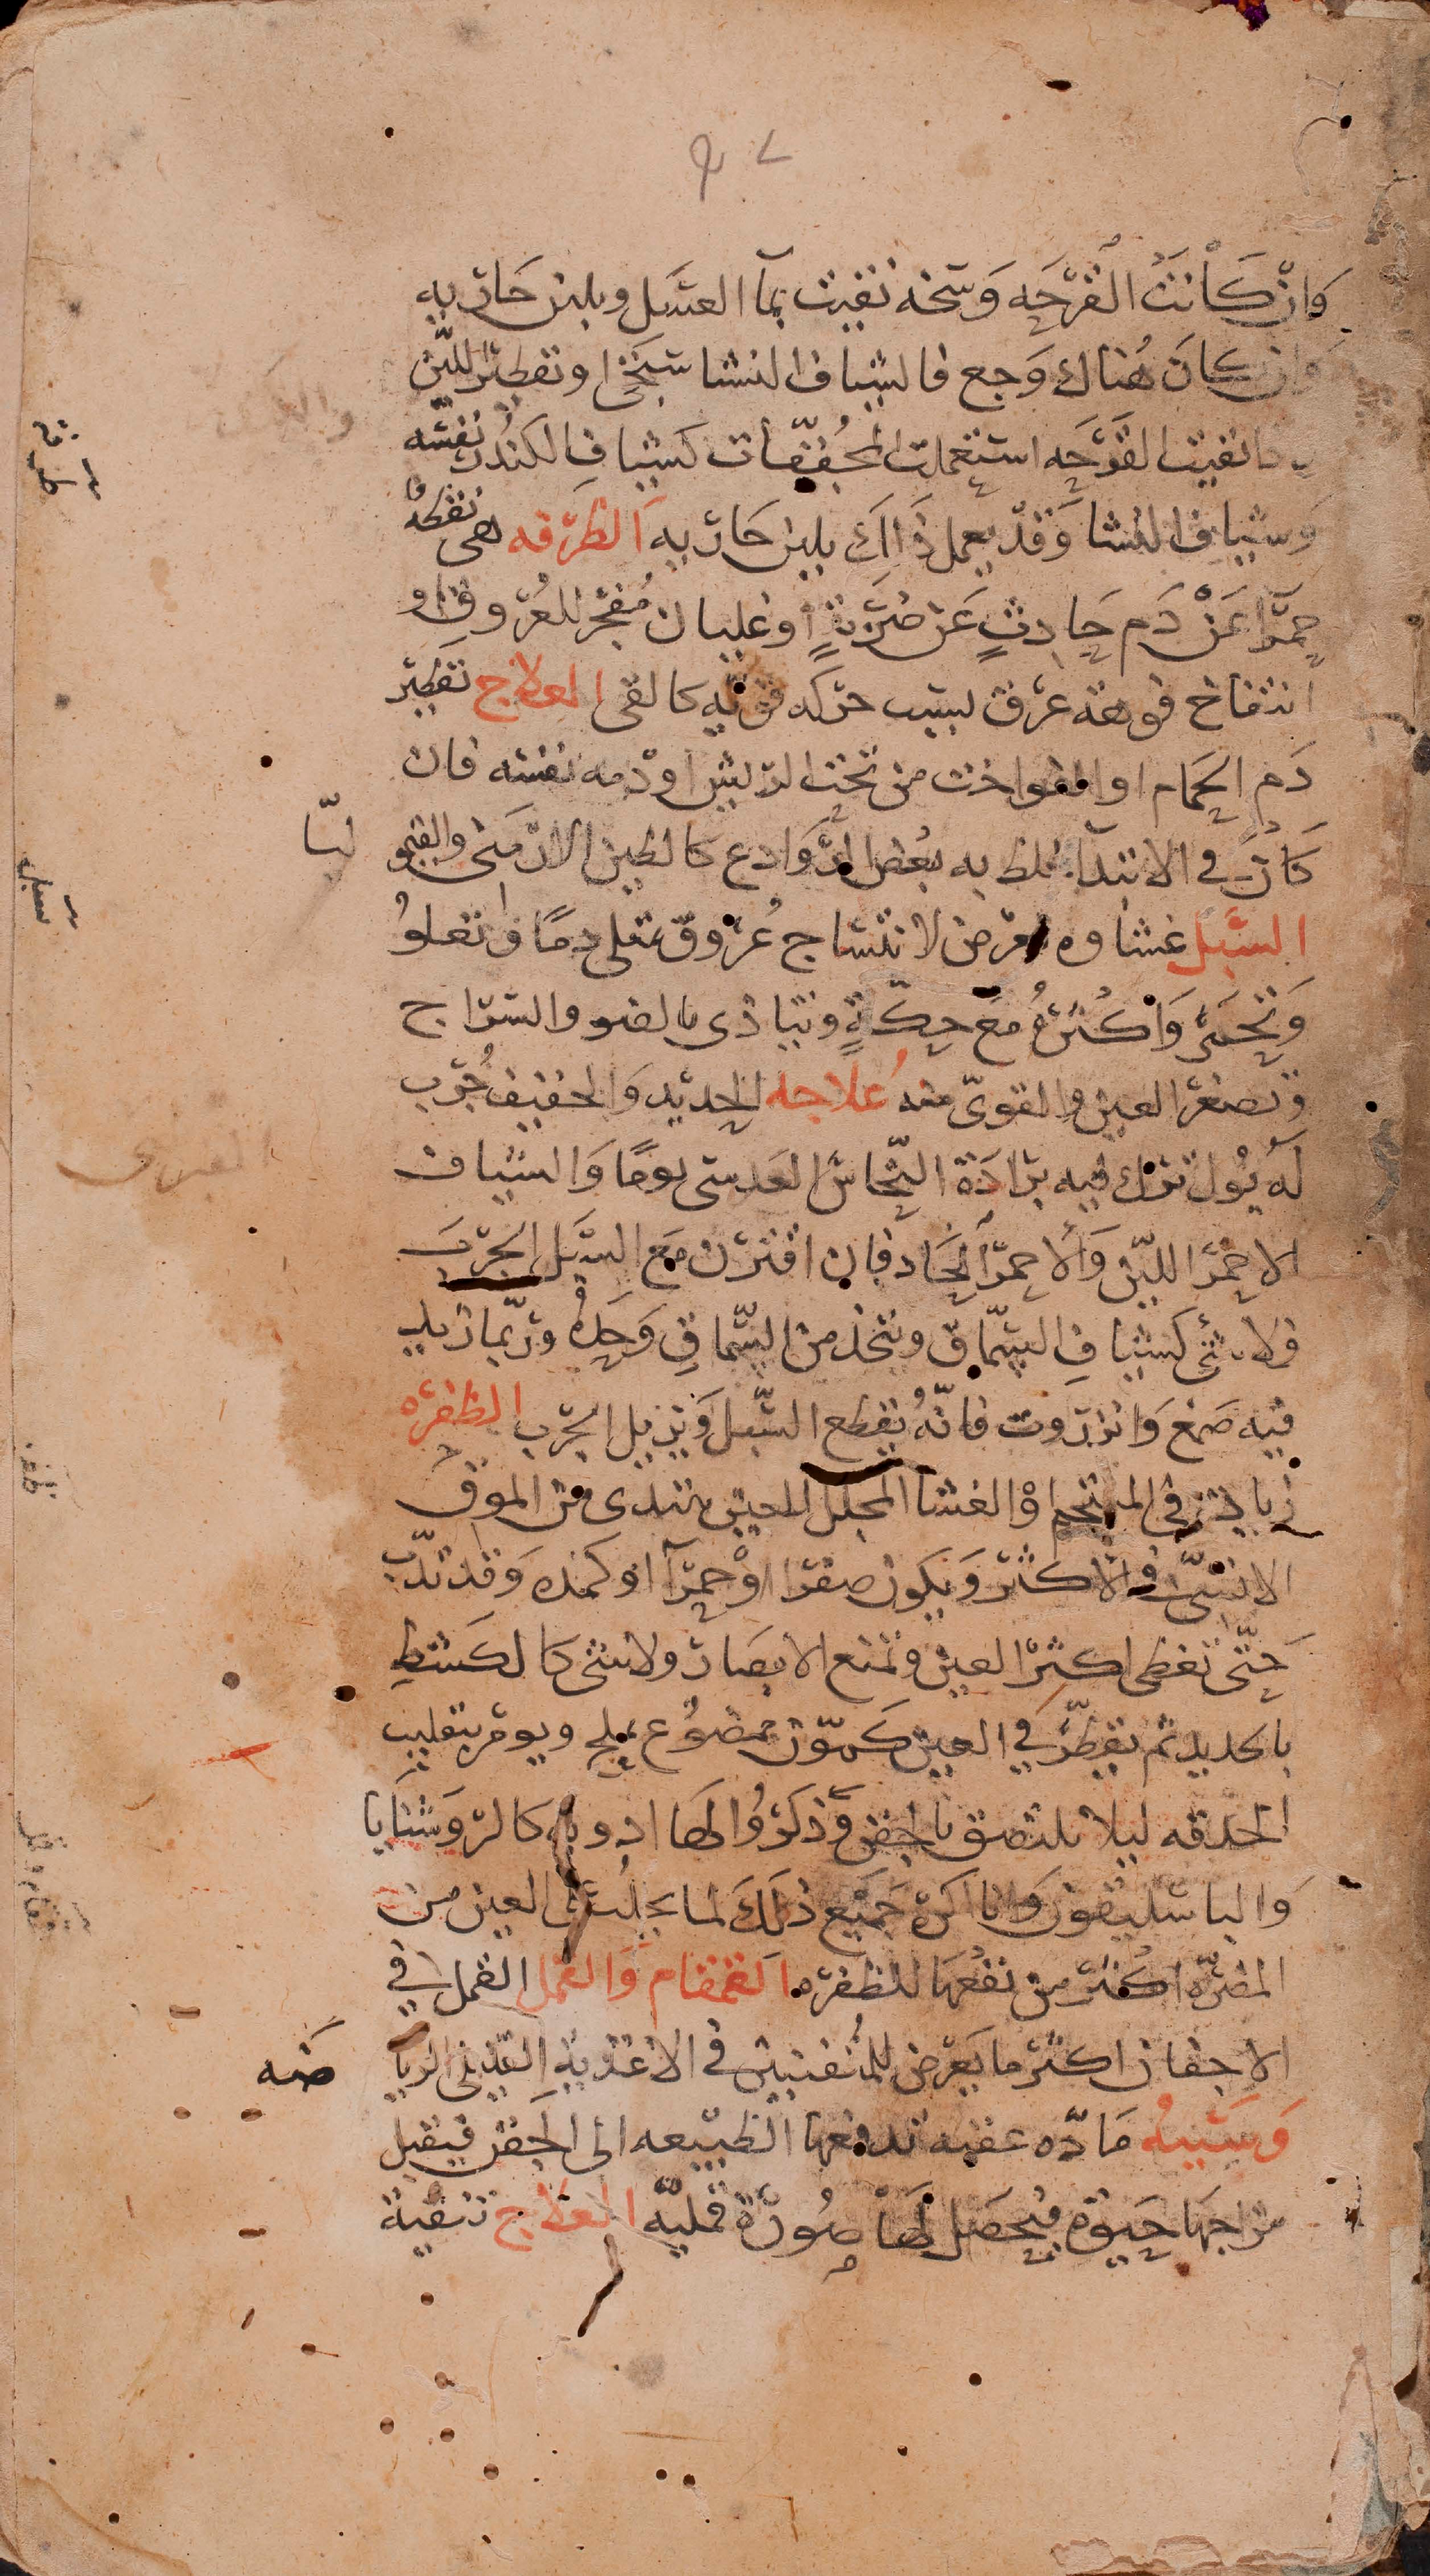 وَان كَانَتْ القُرْحَه وَسخه نقيت بمآ العسَل وبلبن جَاريه
وَان كانَ هُناك وَجع فالشياف النشاستجى وتقطير اللبن
فاذا نقيت القرحَه استعملت المجُففّات كشياف الكندُر نفسه
وَشياف النشا وَقد يعمل ذَلكَ بلبن جَاريه الطرفه هى نقطه
حمرَآ عَنْ دَم حَادثٍ عَن ضربَةٍ او غليان مُفجر للعُروق او
انتفاخ فوهة عرق لسبب حركه قويّه كالقى العلاج تقطير
دَم الحَمام او الفواخت من تحت الريش او دمه نفسه فان
كَان فى الابتدآ خلط به بعُض الروَادع كالطين الارمَنى والقيمو ليّا
السَبَل غشاوه تعرض لانتساج عُروق تمتلى دمًا وَتعلوُ
وَتحمَرّ وَاكثرُهُ مَعَ حِكّةٍ وتتاذى بالضو والسراج
وَتصغر العين والقوىّ منه عُلاجه الحديد وَالخفيف جُرّب
لَهُ بُول ترك فيه برَادَة النّحاسَ العَدسى يومًا وَالشياف
الاحمَر الليّن وَالاحمرَ الحَاد فان اقترن مَع السَبَل الجَرَب
فلا شئ كشياف السمّاق ويتخذ من السّماق وَحدَهُ ورُبّما زيد
فيه صَمغ وَانزروت فانّهُ يقطع السّبل وَيزيل الجرَب الظفره
زيادة فى الملتحم اوْ الغشا المجلل للعين تبتدى من الموق
الانسىّ فى الاكثر وَيكون صفرا اوْ حمرَآ او كمده وَقد تدّب
حَتّى تغطى اكثر العين وتمنع الابصَار ولا شئ كالكشط
بالحديد ثم يقطّر فى العين كمّون ممضوُغ بملح ويومر بتقليب
الحدقه ليلا يلتصق بالجفن وَذكرُوا لهَا ادويه كالروَشنَايا
وَالباسَليقون وَانا اكرهَ جَمِيع ذَلكَ لما يجلبُ على العين من
المضرّه اكثر من نفعُهَا للظفره القمقام وَالقمل القمل فى
الاجفان اكثر ما يعَرض للمُتفننين فى الاغذية القليلى الريا ضَه
وَسَبَبهُ مَادّه عفنه تدفعها الطبيعه الى الجَفن فيقبل
مزاجهَا حَيوة فيحصَل لهَا صُورَة قمليّه العلاج تنقية